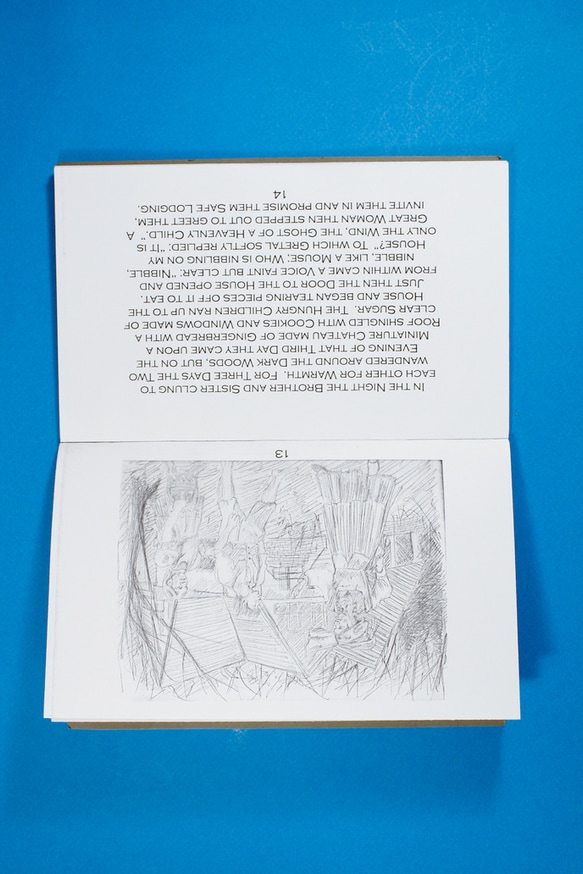 13
In the Night the Brother and Sister clung to
each other for Warmth. For Three Days the Two
wandered around the Dark Woods, but on the
Evening of that Third Day they came upon a
Miniature Chateau made of Gingerbread with a
Roof shingled with Cookies and Windows made of
clear Sugar. The Hungry Children ran up to the
House and began tearing pieces off it to eat.
Just then the Door to the House opened and
from within came a Voice faint but clear; "Nibble,
nibble, like a Mouse; Who is nibbling on my
House?" To which Gretal softly replied; "It is
only the Wind, the Ghost of a Heavenly Child." A
Great Woman then stepped out to greet them,
invite them in and promise them Safe Lodging.
14